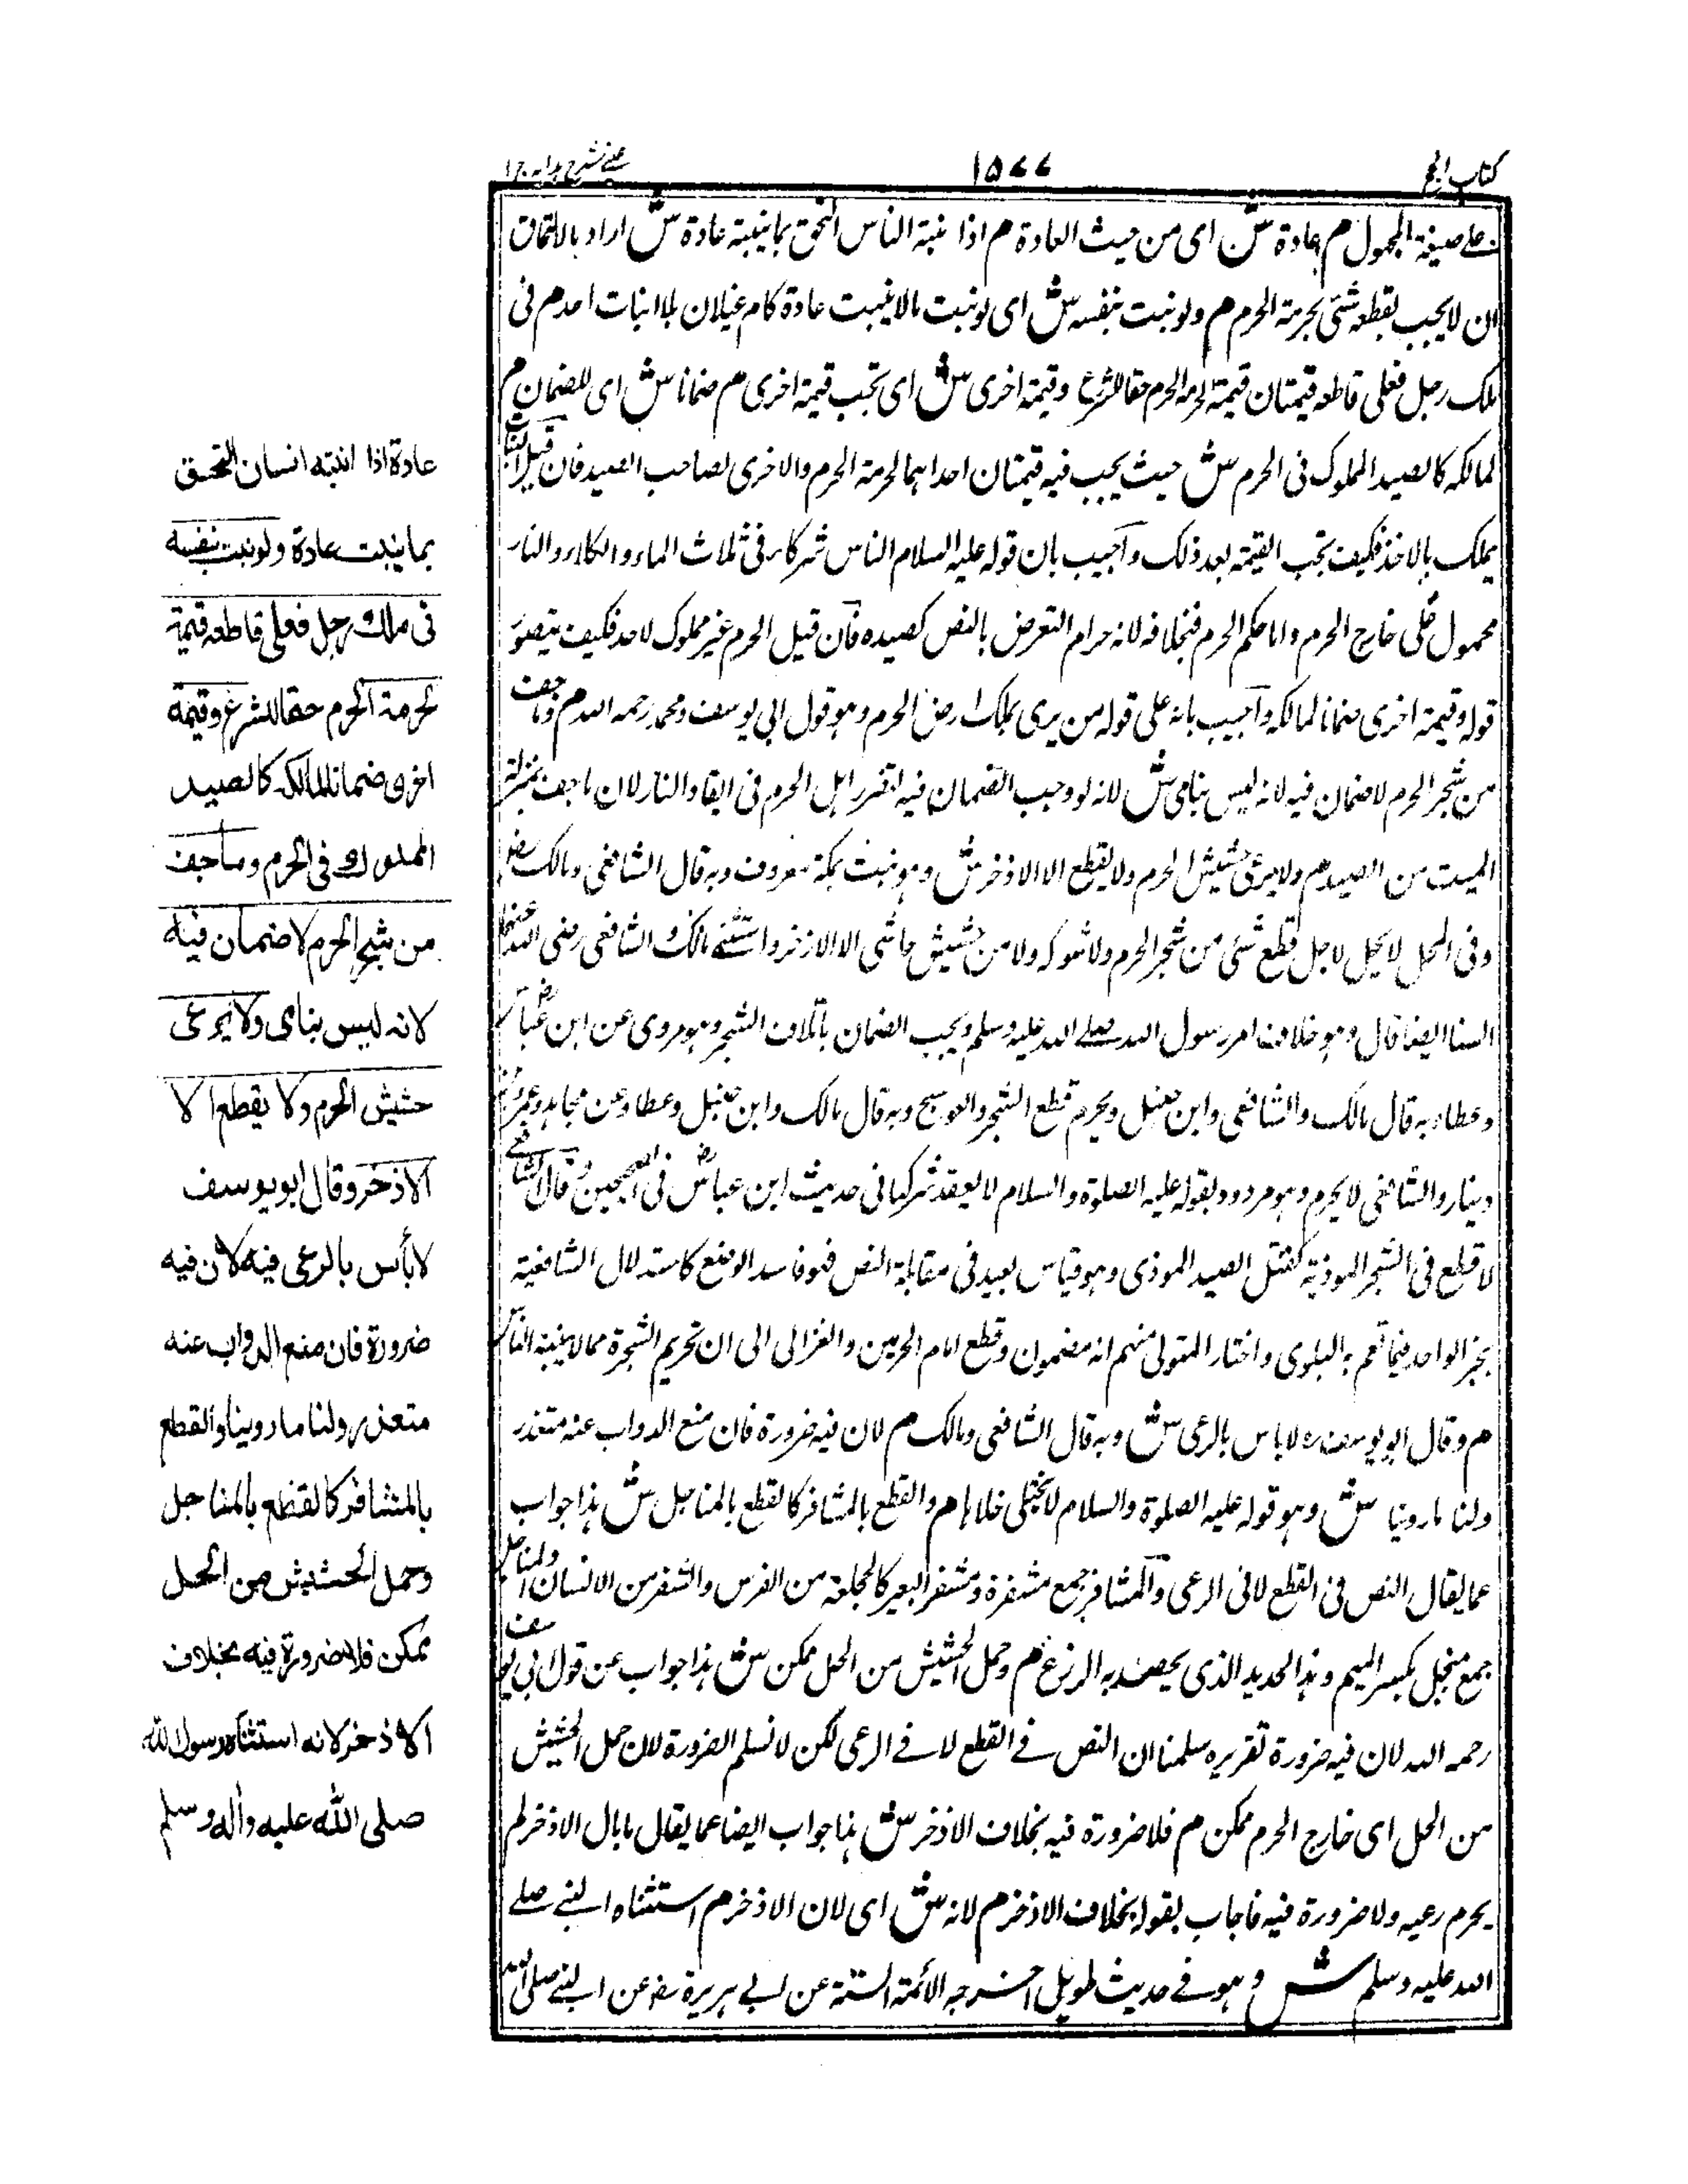 كتاب الحج
١٥٧٧
عينى شرح هدايه ج ١
على صيغة المجهول م عادة ش اى من حيث العادة م اذا نبته الناس التحق بما ينبته عادة ش اراد بالالتحاق
ان لا يجب بقطعه شئ بحرمة الحرم م ولو نبت بنفسه ش اى لو نبت مالا ينبت عادة كام غيلان بلا انبات احد م فى
ملك رجل فعلى قاطعه قيمتان قيمة لحرمة الحرم حقا للشرع وقيمة اخرى ش اى تجب قيمة اخرى م ضمانا ش اى للضمان م
لمالكه كالصيد المملوك فى الحرم ش حيث يجب فيه قيمتان احداهما لحرمة الحرم والاخرى لصاحب الصيد فان قيل النبات
يملك بالاخذ فكيف تجب القيمة بعد ذلك وأجيب بان قوله عليه السلام الناس شركاء فى ثلاث الماء والكلاء والنار
محمول على خارج الحرم واما حكم الحرم فبخلافه لانه حرام التعرض بالنص كصيده فان قيل الحرم غير مملوك لاحد فكيف يتصور
قوله وقيمة اخرى ضمانا لمالكه وأجيب بانه على قول من يرى بملك ارض الحرم وهو قول ابى يوسف ومحمد رحمه الله م وما جف
من شجر الحرم لا ضمان فيه لانه ليس بنامى ش لانه لو وجب الضمان فيه لتضرر اهل الحرم فى ايقاد النار لان ما جف بمنزلة
الميت من الصيد م ولا يرعى حشيش الحرم ولا يقطع الا الاذخر ش وهو نبت بمكة معروف وبه قال الشافعى ومالك رضـ
وفى الحل لا يحل لاجل قطع شئ من شجر الحرم ولا شوكه ولا من حشيش حاشى الا الاذخر واستثنى مالك والشافعى رضى الله عنهما
السنا ايضا قال وهو خلاف امر رسول الله صلے الله عليه وسلم ويجب الضمان باتلاف الشجر وهو مروى عن ابن عباس رضـ
وعطاء وبه قال مالك والشافعى وابن حنبل ويحرم قطع الشجر والعوسج وبه قال مالك وابن حنبل وعطاء وعن مجاهد وعمرو بن
دينار والشافعى لا يحرم وهو مردود بقوله عليه الصلوة والسلام لا يعضد شوكها فى حديث ابن عباس رضـ فى الصحيحين وقال الشافعى
لا قطع فى الشجر الموذية كقتل الصيد الموذى وهو قياس بعيد فى مقابلة النص فهو فاسد الوضع كاستدلال الشافعية
بخبر الواحد فيما تعم به البلوى واختار المتولى منهم انه مضمون وقطع امام الحرمين والغزالى الى ان تحريم الشجرة مما لا ينبته الناس
م وقال ابو يوسف ره لا باس بالرعى ش وبه قال الشافعى ومالك م لان فيه ضرورة فان منع الدواب عنه متعذر
ولنا ما روينا ش وهو قوله عليه الصلوة والسلام لا يختلى خلاها م والقطع بالمشافر كالقطع بالمناجل ش هذا جواب
عما يقال النص فى القطع لا فى الرعى والمشافر جمع مشفرة ومشفر البعير كالجحلة من الفرس والشفر من الانسان والمناجل
جمع منجل بكسر الميم وهذا الحديد الذى يحصد به الزرع م وحمل الحشيش من الحل ممكن ش هذا جواب عن قول ابى يوسف
رحمه الله لان فيه ضرورة تقريره سلمنا ان النص فے القطع لا فے الرعى لكن لا نسلم الضرورة لان حمل الحشيش
من الحل اى خارج الحرم ممكن م فلا ضرورة فيه بخلاف الاذخر ش هذا جواب ايضا عما يقال ما بال الاذخر لم
يحرم رعيه ولا ضرورة فيه فاجاب بقوله بخلاف الاذخر م لانه ش اى لان الاذخر م استثناه النبے صلے
الله عليه وسلم ش وهو فے حديث طويل اخرجه الأئمة الستة عن ابے هريرة رضـ عن النبے صلى الله
عادة اذا انبته انسان التحق
بما ينبت عادة ولو نبت بنفسه
فى ملك رجل فعلى قاطعه قيمة
لحرمة الحرم حقا للشرع وقيمة
اخرى ضمانا للمالك كالصيد
المملوك فى الحرم وما جف
من شجر الحرم لا ضمان فيه
لانه ليس بنامى ولا يرعى
حشيش الحرم ولا يقطع الا
الاذخر وقال ابو يوسف
لا بأس بالرعى فيه لان فيه
ضرورة فان منع الدواب عنه
متعذر ولنا ما روينا والقطع
بالمشافر كالقطع بالمناجل
وحمل الحشيش من الحل
ممكن فلا ضرورة فيه بخلاف
الاذخر لانه استثناه رسول الله
صلى الله عليه وآله وسلم